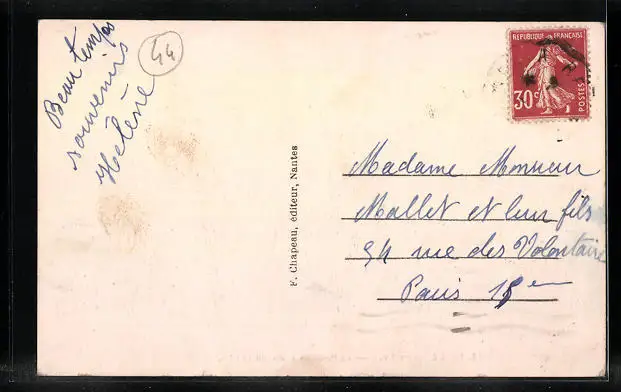 Beau temps
souvenirs
Hélène
44
REPUBLIQUE FRANÇAISE
30c
POSTES
F. Chapeau, éditeur, Nantes
Madame Monsieur
Mallet et leur fils
54 rue des Volontaire
Paris 15em